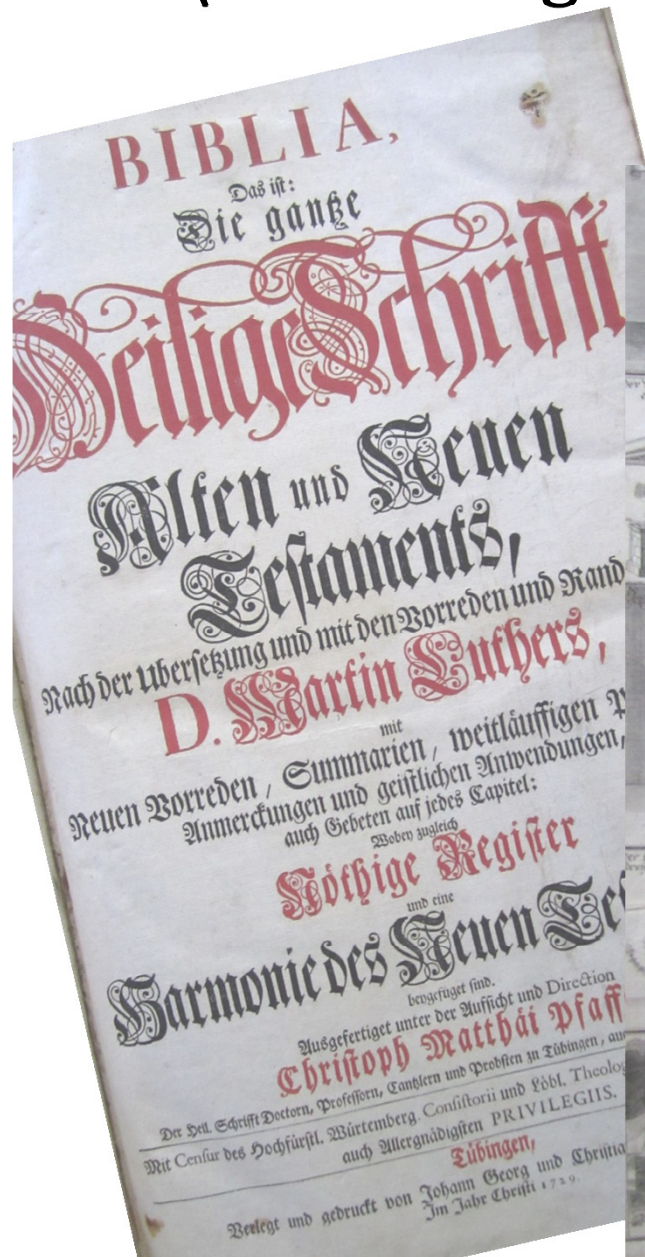 BIBLIA,
Das ist:
Die gantze
Heilige Schrifft
Alten und Neuen
Testaments,
Nach der Ubersetzung und mit den Vorreden und Rand
D. Martin Luthers,
mit
Neuen Vorreden, Summarien, weitläuffigen
Anmerckungen und geistlichen Anwendungen,
auch Gebeten auf jedes Capitel:
Wobey zugleich
Nöthige Register
und eine
Harmonie des Neuen Tes
beygefüget sind.
Ausgefertiget unter der Aufsicht und Direction
Christoph Matthäi Pfaff
Der Heil. Schrifft Doctorn, Professorn, Cantzlern und Probsten zu Tübingen, auc
Mit Censur des Hochfürstl. Würtemberg. Consistorii und Löbl. Theolog
auch Allergnädigsten PRIVILEGIIS.
Tübingen,
Verlegt und gedruckt von Johann Georg und Christia
Im Jahr Christi 1729.